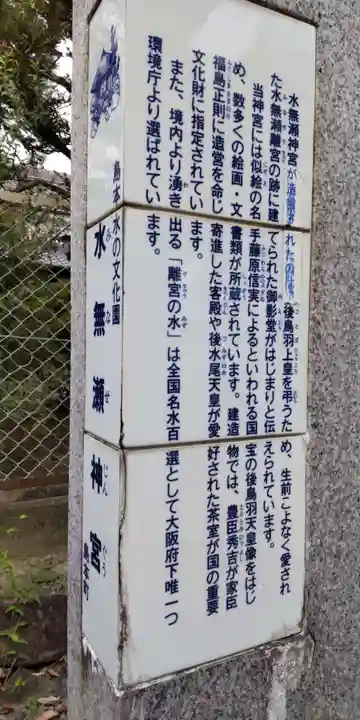 水無瀬神宮が造営されたのは、後鳥羽上皇を弔うため、生前こよなく愛され
た水無瀬離宮の跡に建てられた御影堂がはじまりと伝えられています。
当神宮には似絵の名手藤原信実によるといわれる国宝の後鳥羽天皇像をはじ
め、数多くの絵画・文書類が所蔵されています。建造物では、豊臣秀吉が家臣
福島正則に造営を命じ寄進した客殿や後水尾天皇が愛好された茶室が国の重要
文化財に指定されています。
また、境内より湧き出る「離宮の水」は全国名水百選として大阪府下唯一つ
環境庁より選ばれています。
島本 水の文化園
水無瀬神宮
みなせじんぐう
島本町